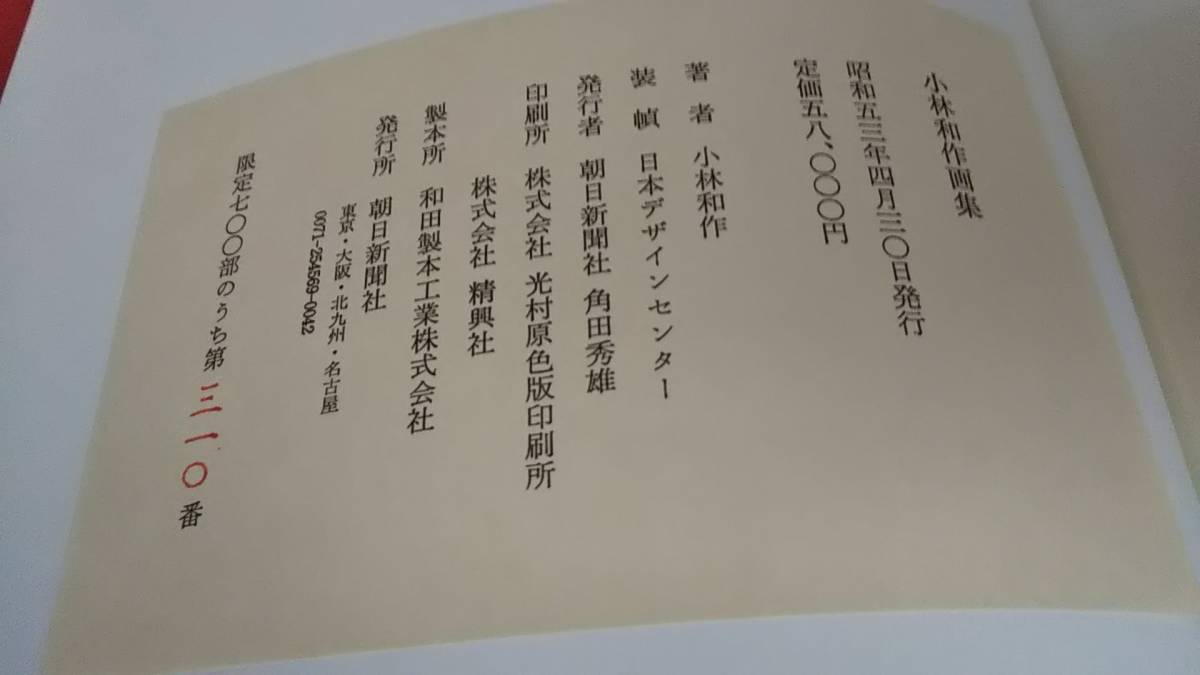 小林和作画集
昭和五三年四月三〇日発行
定価五八、〇〇〇円
著者 小林和作
装幀 日本デザインセンター
発行者 朝日新聞社 角田秀雄
印刷所 株式会社 光村原色版印刷所
株式会社 精興社
製本所 和田製本工業株式会社
発行所 朝日新聞社
東京・大阪・北九州・名古屋
0071-254569-0042
限定七〇〇部のうち第三一〇番